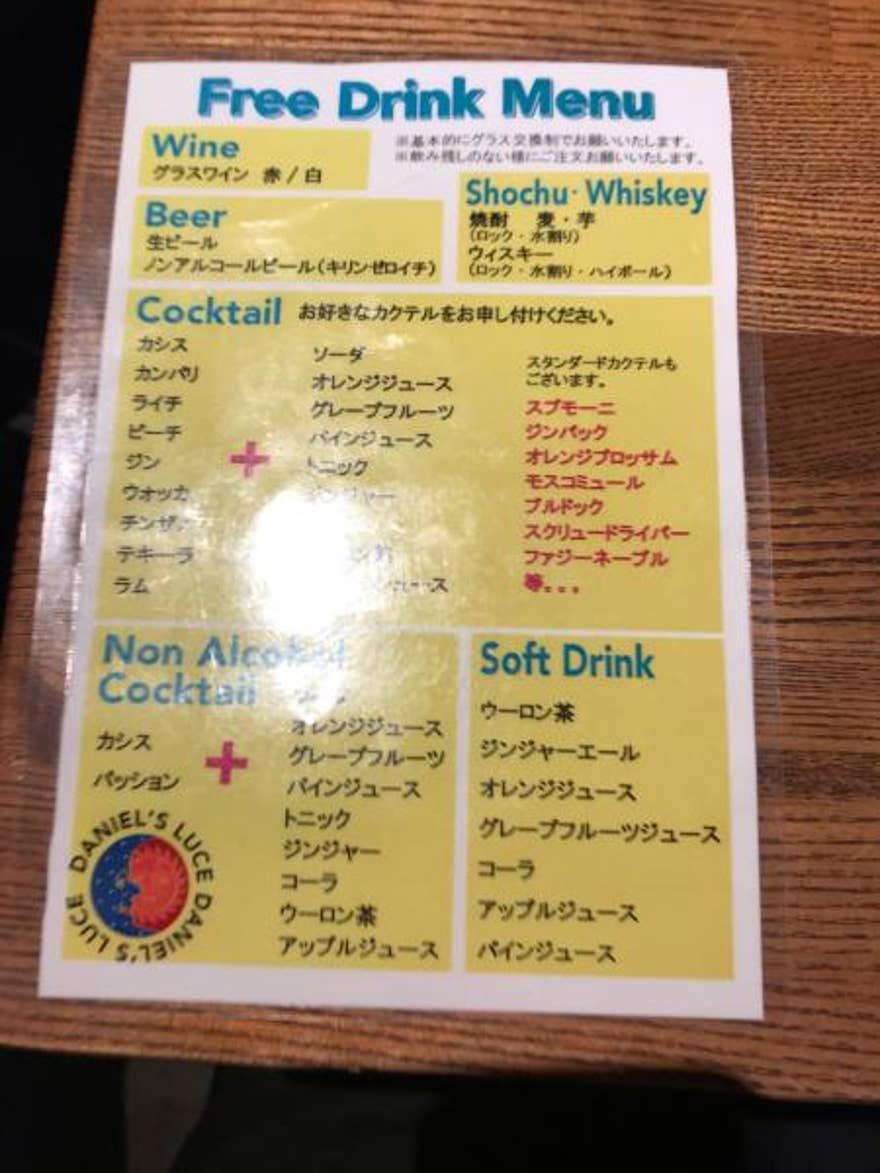 Free Drink Menu
※基本的にグラス交換制でお願いいたします。
※飲み残しのない様にご注文お願いいたします。
Wine
グラスワイン 赤 / 白
Shochu・Whiskey
焼酎 麦・芋
(ロック・水割り)
ウィスキー
(ロック・水割り・ハイボール)
Beer
生ビール
ノンアルコールビール(キリンゼロイチ)
Cocktail お好きなカクテルをお申し付けください。
カシス
カンパリ
ライチ
ピーチ
ジン
ウオッカ
チンザノ
テキーラ
ラム
+
ソーダ
オレンジジュース
グレープフルーツ
パインジュース
トニック
ジンジャー
スタンダードカクテルも
ございます。
スプモーニ
ジンバック
オレンジブロッサム
モスコミュール
ブルドック
スクリュードライバー
ファジーネーブル
等。。。
Non Alcohol
Cocktail
カシス
パッション
+
オレンジジュース
グレープフルーツ
パインジュース
トニック
ジンジャー
コーラ
ウーロン茶
アップルジュース
DANIEL'S LUCE DANIEL'S LUCE
Soft Drink
ウーロン茶
ジンジャーエール
オレンジジュース
グレープフルーツジュース
コーラ
アップルジュース
パインジュース